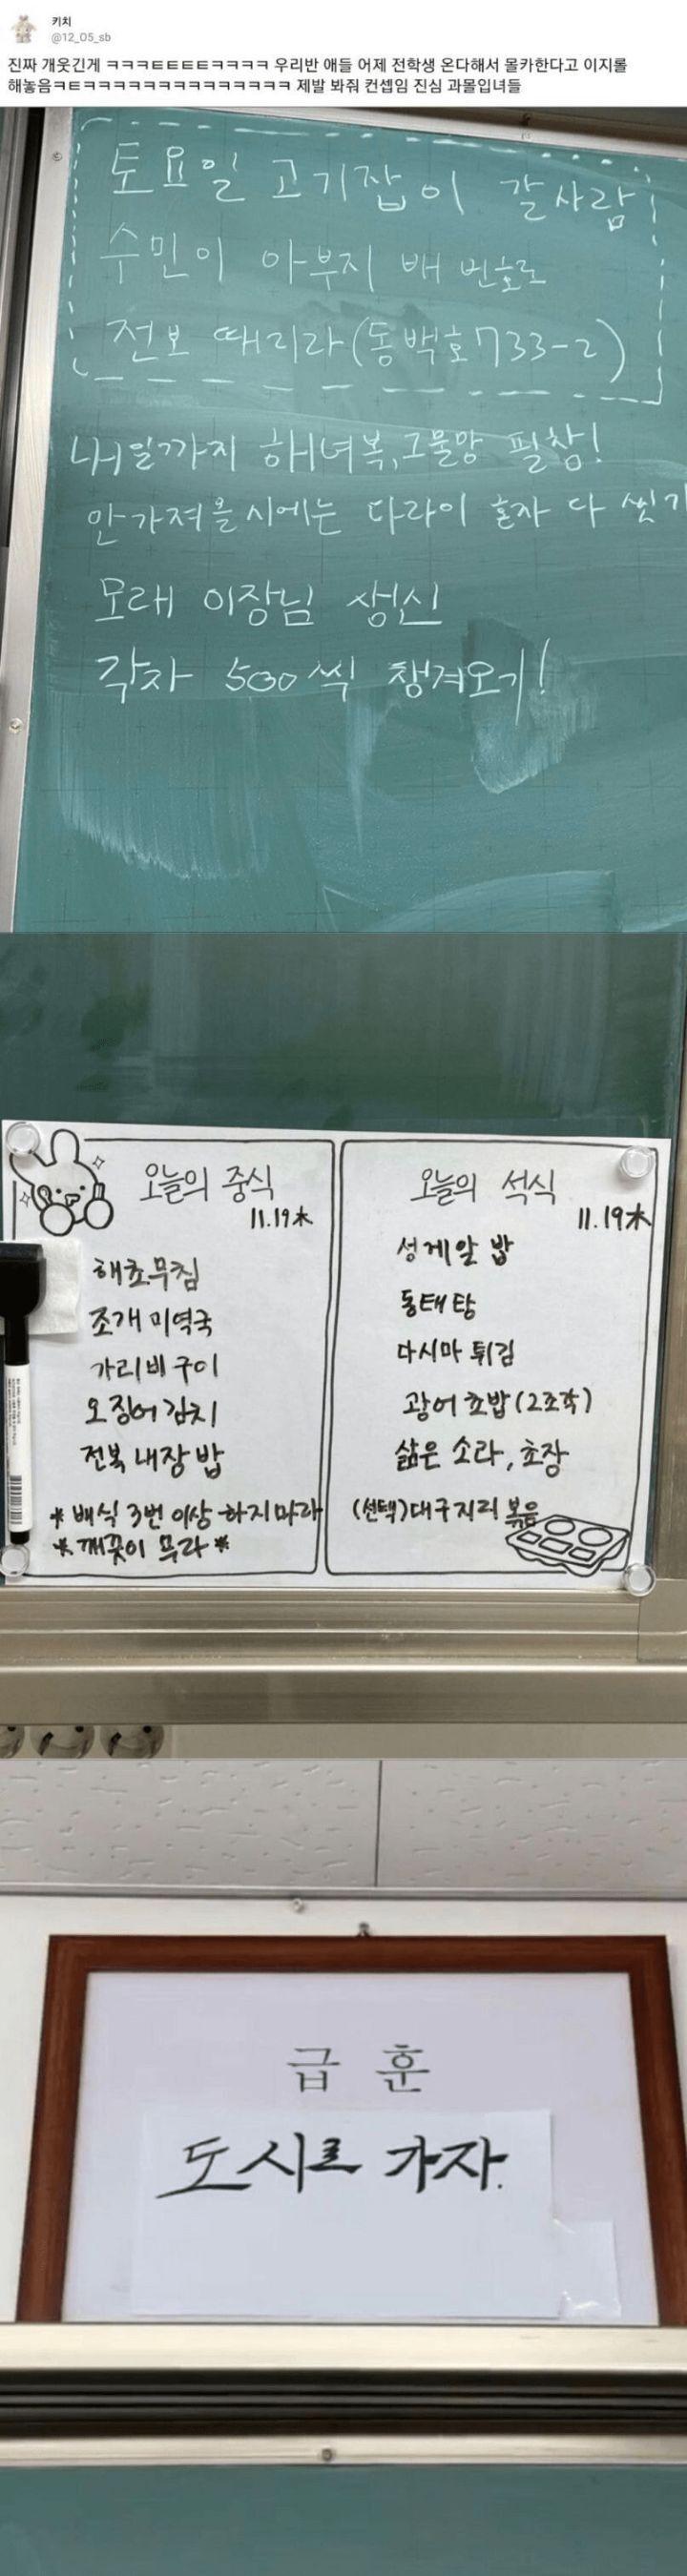 키치
@12_05_sb
진짜 개웃긴게 ㅋㅋㅋㅌㅌㅌㅌㅌㅋㅋㅋㅋ 우리반 애들 어제 전학생 온다해서 몰카한다고 이지롤
해놓음ㅋㅌㅋㅋㅋㅋㅋㅋㅋㅋㅋㅋㅋㅋㅋㅋㅋ 제발 봐줘 컨셉임 진심 과몰입녀들
토요일 고기잡이 갈사람
수민이 아부지 배 번호로
전보 때리라(동백호733-2)
내일까지 해녀복,그물망 필참!
안가져올시에는 다라이 혼자 다 씻기
모레 이장님 생신
각자 500씩 챙겨오기!
오늘의 중식
11.19木
해초무침
조개 미역국
가리비구이
오징어김치
전복내장밥
*배식 3번 이상 하지마라
*깨끗이 무라*
오늘의 석식
11.19木
성게알밥
동태탕
다시마튀김
광어초밥(2조각)
삶은 소라, 초장
(선택)대구지리 볶음
급훈
도시로 가자.